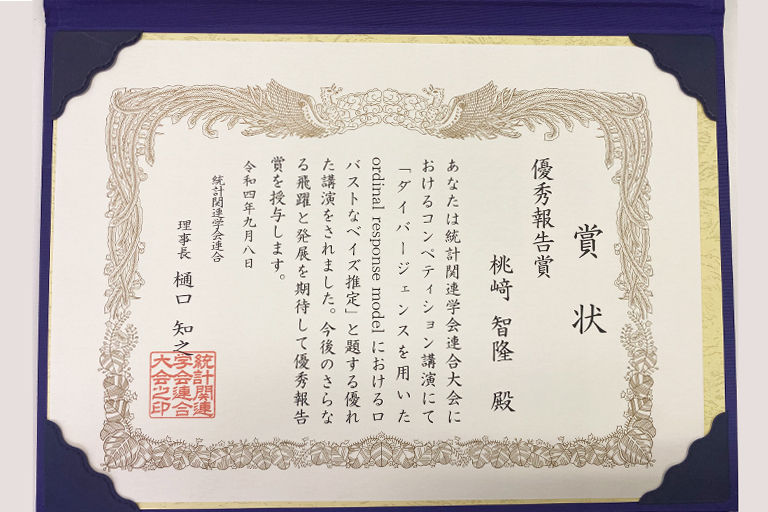 賞状
優秀報告賞
桃﨑 智隆 殿
あなたは統計関連学会連合大会に
おけるコンペティション講演にて
「ダイバージェンスを用いた
ordinal response model におけるロ
バストなベイズ推定」と題する優れ
た講演をされました。今後のさらな
る飛躍と発展を期待して優秀報告
賞を授与します。
令和四年九月八日
統計関連学会連合
理事長 樋口 知之
統計関連
学会連合
大会之印